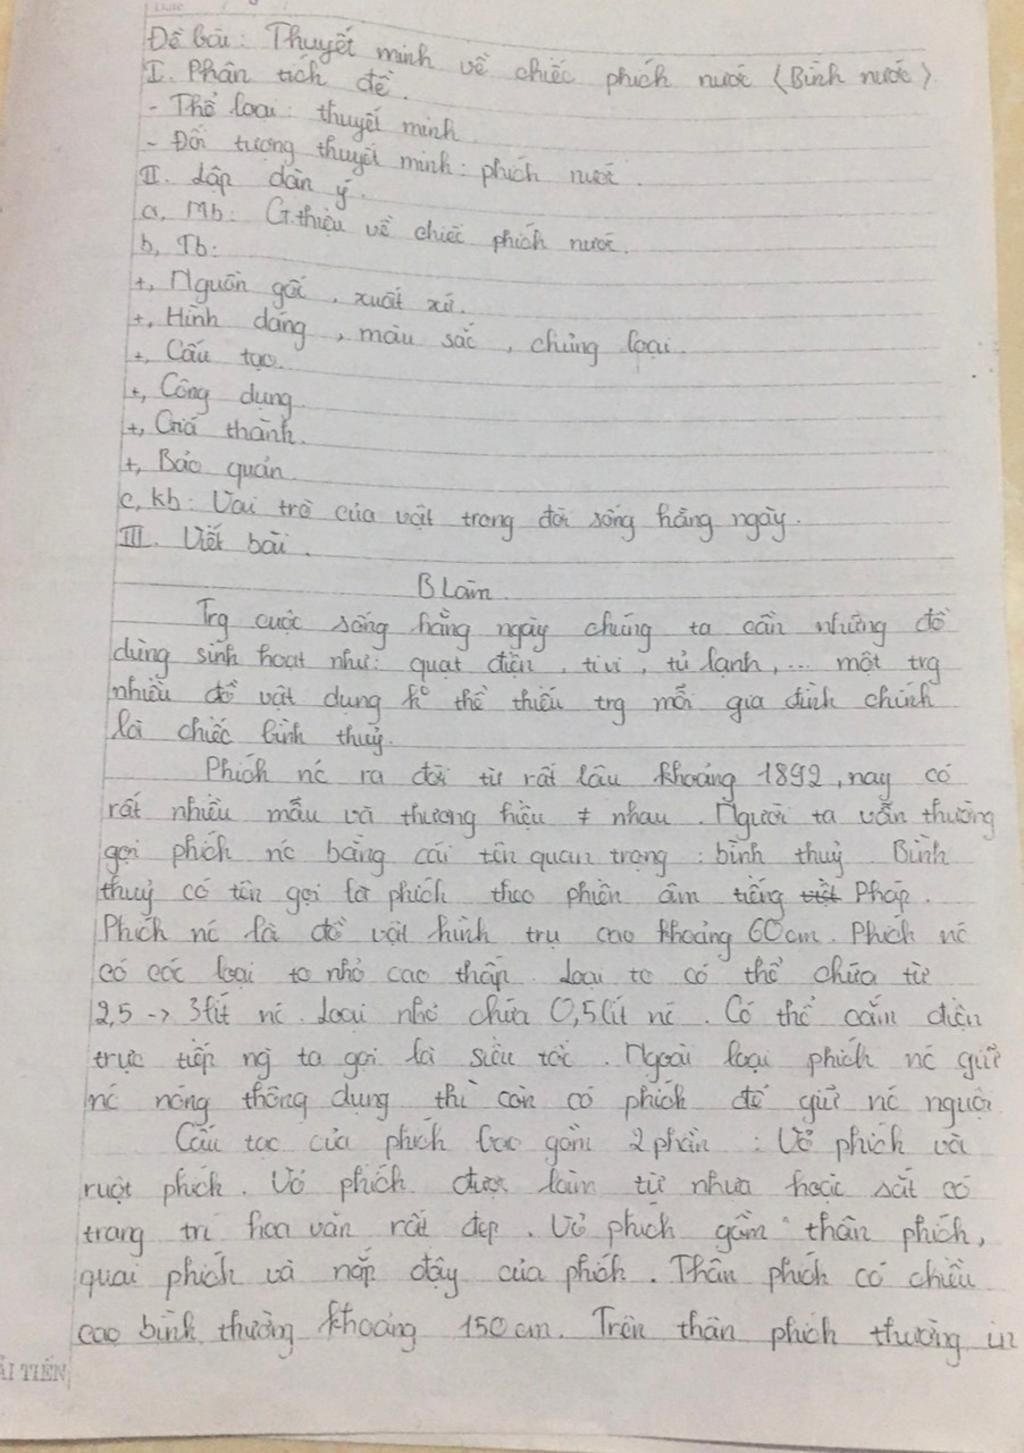 Đề bài: Thuyết minh về chiếc phích nước (Bình nước)
I. Phân tích đề.
- Thể loại: thuyết minh.
- Đối tượng thuyết minh: phích nước.
II. Lập dàn ý.
a, Mb: G.thiệu về chiếc phích nước.
b, Tb:
+, Nguồn gốc, xuất xứ.
+, Hình dáng, màu sắc, chủng loại.
+, Cấu tạo.
+, Công dụng.
+, Giá thành.
+, Bảo quản.
c, kb: Vai trò của vật trong đời sống hằng ngày.
III. Viết bài.
B Làm
Trg cuộc sống hằng ngày chúng ta cần những đồ
dùng sinh hoạt như: quạt điện, tivi, tủ lạnh,... một trg
nhiều đồ vật dụng ko thể thiếu trg mỗi gia đình chính
là chiếc bình thuỷ.
Phích nc ra đời từ rất lâu khoảng 1892, nay có
rất nhiều mẫu và thương hiệu ≠ nhau. Người ta vẫn thường
gọi phích nc bằng cái tên quan trọng: bình thuỷ. Bình
thuỷ có tên gọi là phích theo phiên âm tiếng Pháp.
Phích nc là đồ vật hình trụ cao khoảng 60cm. Phích nc
có các loại to nhỏ cao thấp. Loại to có thể chứa từ
2,5 -> 3lít nc. Loại nhỏ chứa 0,5lít nc. Có thể cắm điện
trực tiếp ng ta gọi là siêu tốc. Ngoài loại phích nc giữ
nc nóng thông dụng thì còn có phích để giữ nc nguội
Cấu tạo của phích bao gồm 2 phần: Vỏ phích và
ruột phích. Vỏ phích được làm từ nhựa hoặc sắt có
trang trí hoa văn rất đẹp. Vỏ phích gồm thân phích,
quai phích và nắp đậy của phích. Thân phích có chiều
cao bình thường khoảng 150cm. Trên thân phích thường in
ẢI TIẾN